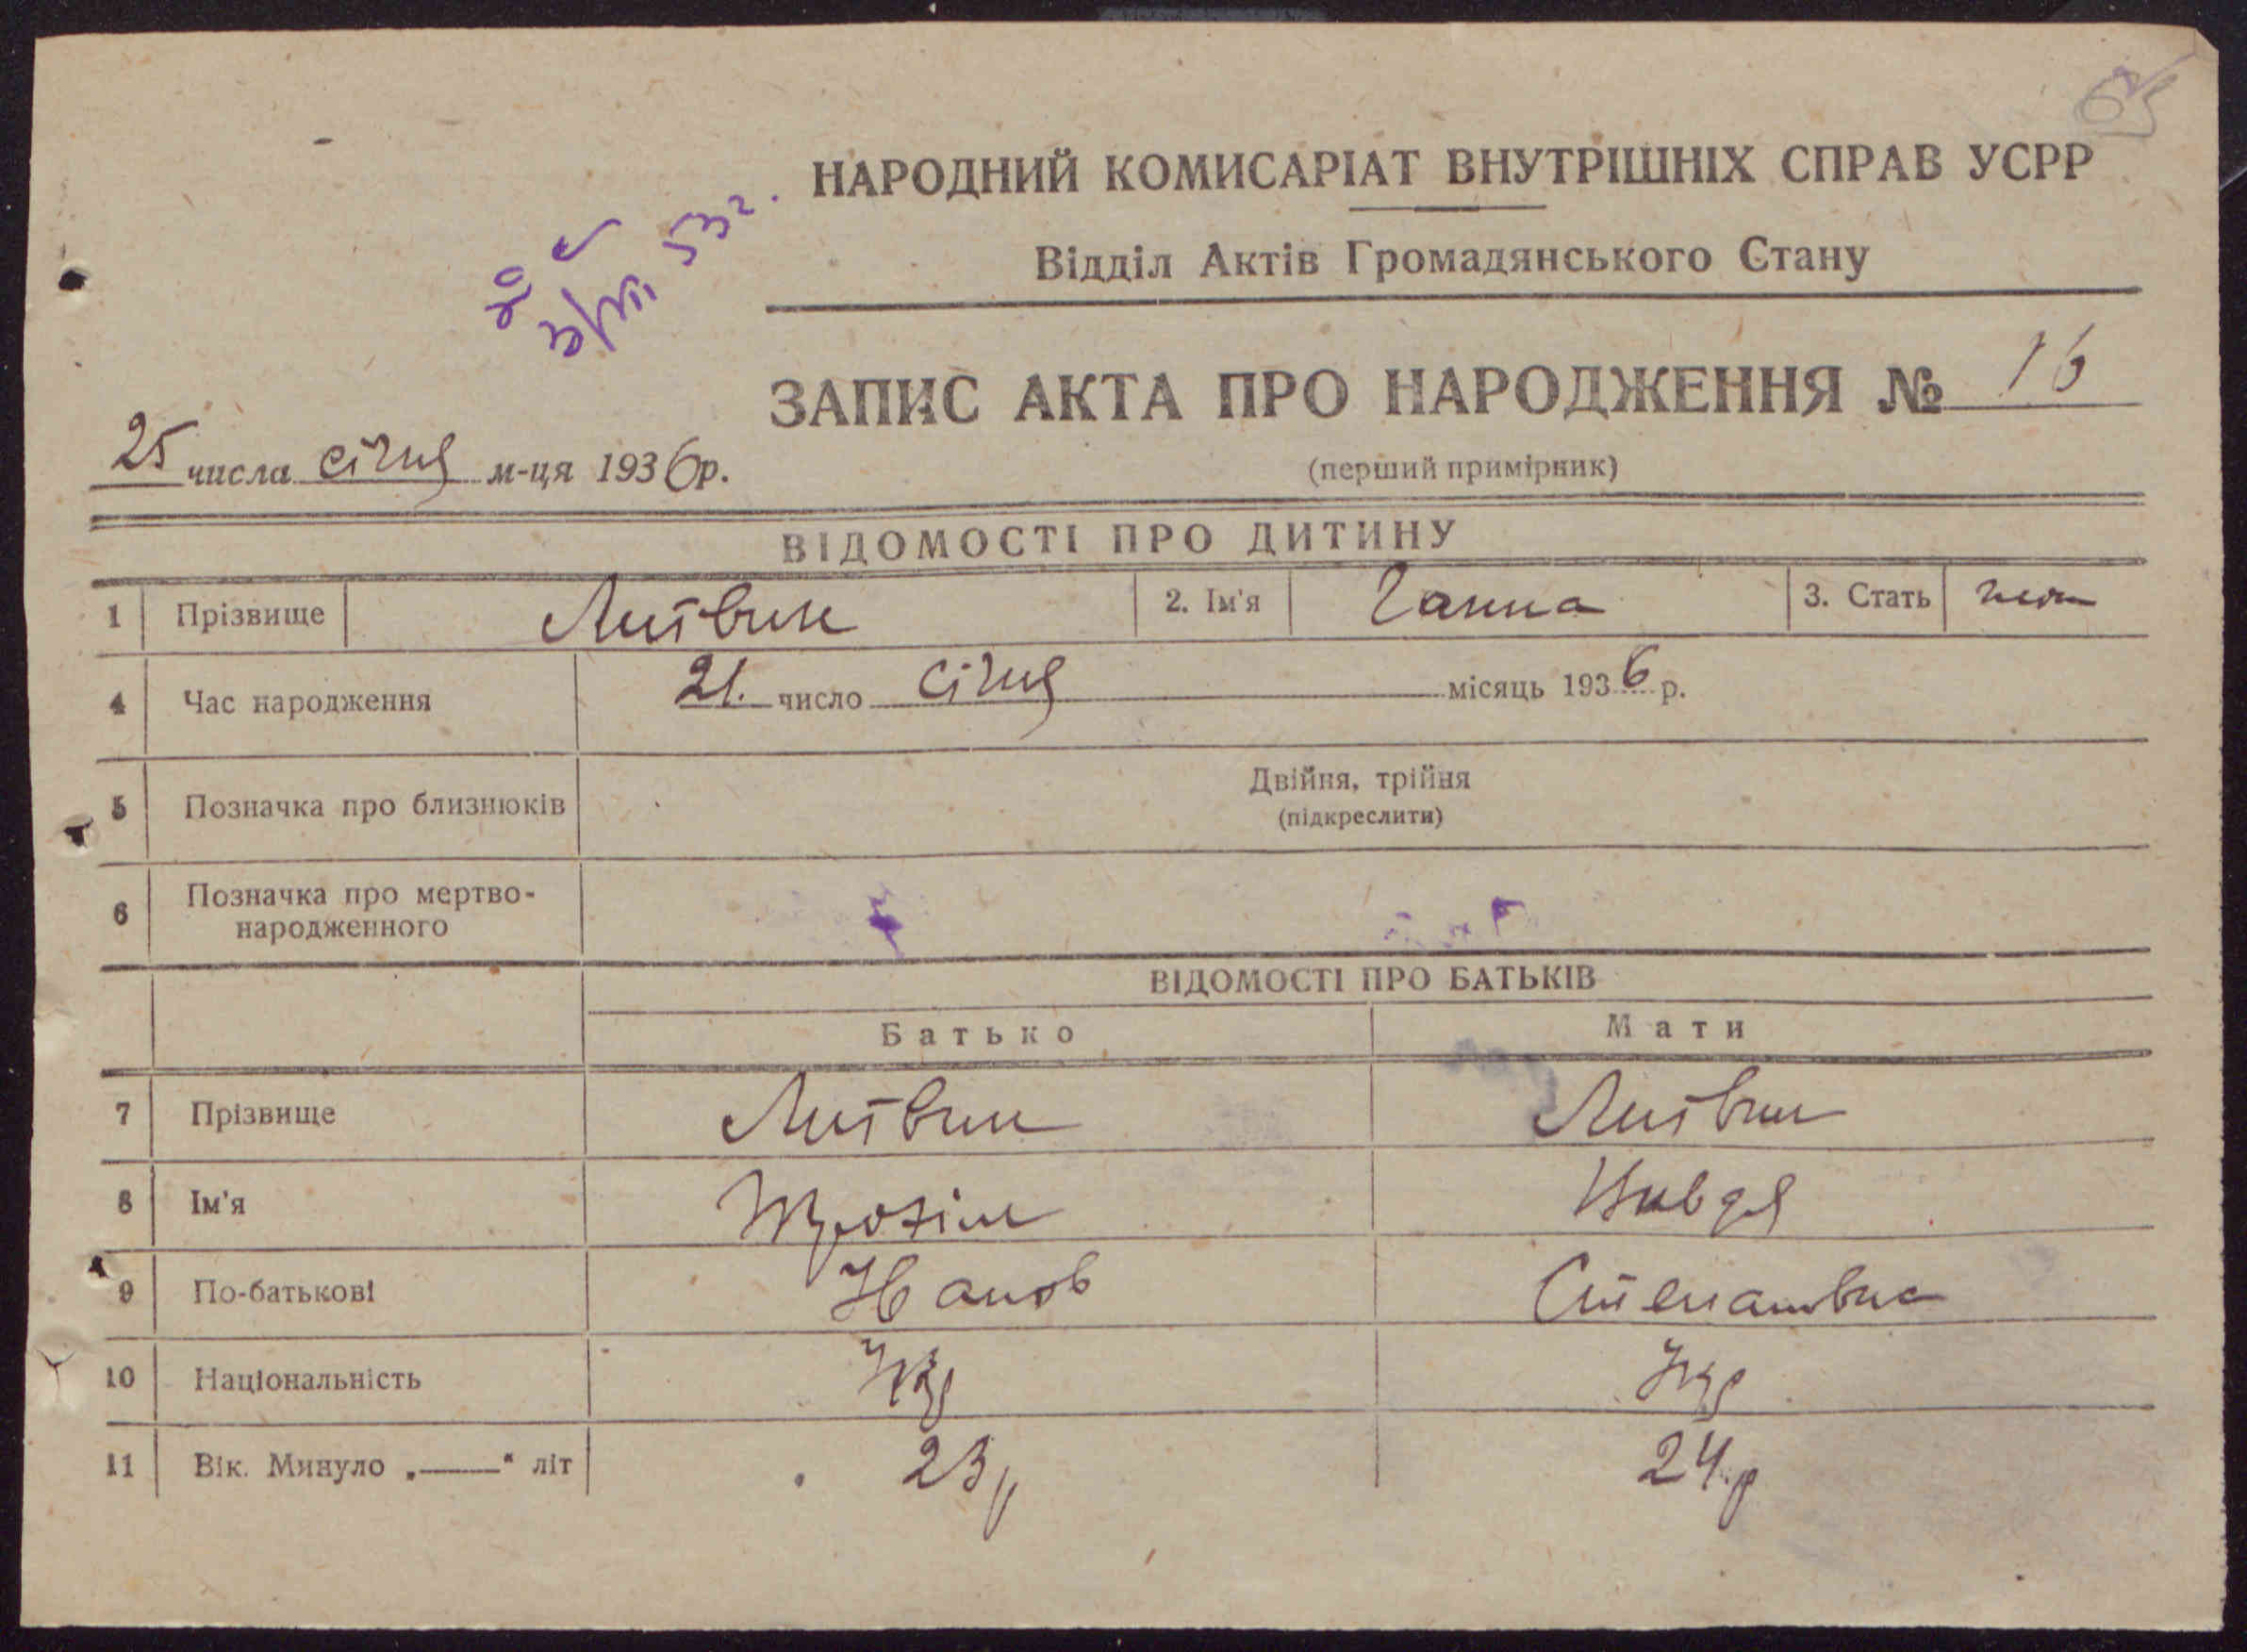 НАРОДНИЙ КОМИСАРІАТ ВНУТРІШНІХ СПРАВ УСРР
Відділ Актів Громадянського Стану
3/VII 53 г.
ЗАПИС АКТА ПРО НАРОДЖЕННЯ № 16
25 числа січня м-ця 1936 р.
(перший примірник)
ВІДОМОСТІ ПРО ДИТИНУ
1 Прізвище Литвин 2. Ім'я Ганна 3. Стать жін
4 Час народження 21. число січня місяць 1936 р.
5 Позначка про близнюків Двійня, трійня
(підкреслити)
6 Позначка про мертво-
народженного
ВІДОМОСТІ ПРО БАТЬКІВ
Батько Мати
7 Прізвище Литвин Литвин
8 Ім'я Трохим Явдя
9 По-батькові Іванов Степановна
10 Національність Укр Укр
11 Вік. Минуло „——“ літ 23 р 24 р